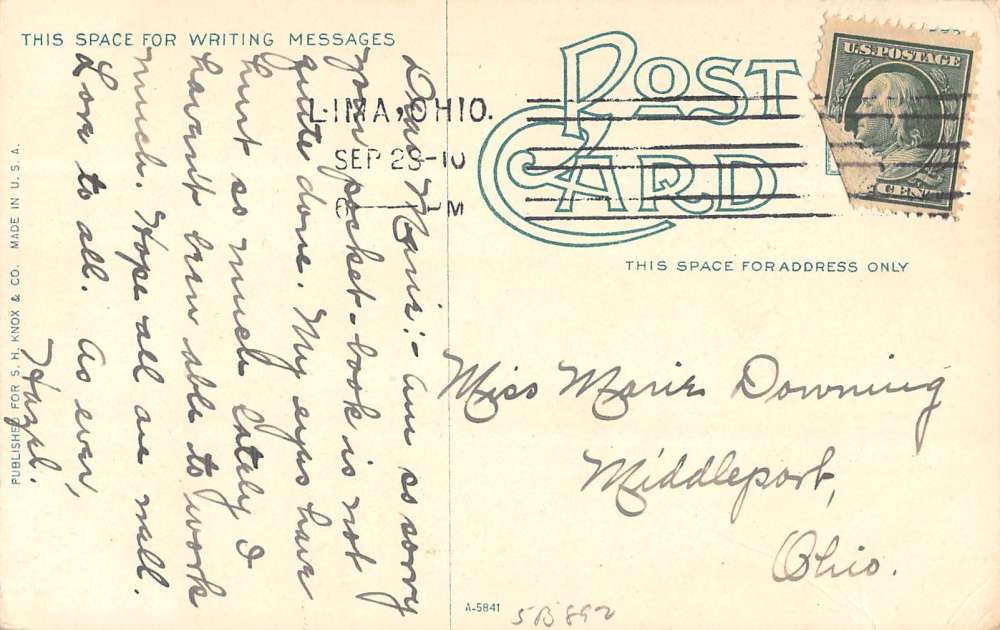 THIS SPACE FOR WRITING MESSAGES
Dear Marie:- Am so sorry
your pocket-book is not
quite done. My eyes have
hurt so much lately I
haven't been able to work
much. Hope all are well.
Love to all. As ever,
Hazel.
PUBLISHED FOR S. H. KNOX & CO. MADE IN U. S. A.
POST
CARD
LIMA, OHIO.
SEP 28-10
M
U.S. POSTAGE
CENT
THIS SPACE FOR ADDRESS ONLY
Miss Marie Downing
Middleport,
Ohio.
A-5841
5B892